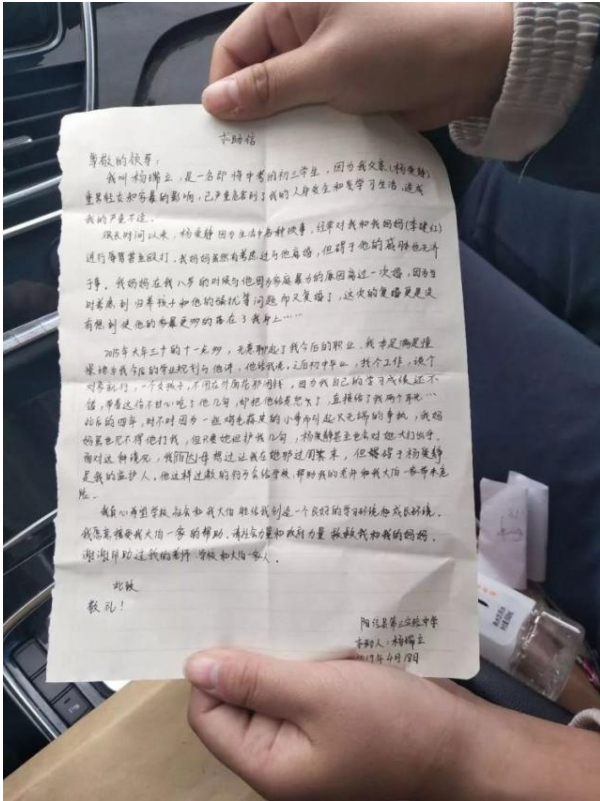 求助信
尊敬的领导：
我叫杨瑞立，是一名即将中考的初三学生，因为我父亲(杨荣静)
重男轻女和家暴的影响，已严重危害到了我的人身安全和及学习生活，造成
我的严重不适。
很长时间以来，杨荣静因为生活中各种琐事，经常对我和我妈妈(李建红)
进行辱骂甚至殴打。我妈妈虽然有考虑过与他离婚，但碍于他的威胁也无济
于事。我妈妈在我八岁的时候与他因为家庭暴力的原因离过一次婚，因为当
时考虑到归养孩子和他的骚扰等问题而又复婚了，这次的复婚更是没
有想到使他的家暴更多的落在了我身上……
2015年大年三十的十一点多，无意聊起了我今后的职业，我本是满是憧
憬地与我今后的学业规划与他讲，他给我说，之后初中毕业，找个工作，谈个
对象就行，一个女孩子，不用在外面花那闲钱，因为我自己的学习成绩还不
错，带着这份不甘心呛了他几句，却把他给惹怒了，直接给了我两个耳光…
此后的四年，时不时因为一些鸡毛蒜皮的小事而引起又无端的争执，我妈
妈虽也见不得他打我，但只要她袒护我几句，杨荣静甚至也会对她大打出手。
面对这种境况，我大伯母想过让我在她那过周末，但碍得于杨荣静
是我的监护人，他这样过激的行为会给学校，帮助我的老师和我大伯一家带来危
险。
我真心希望学校，社会和我大伯能给我创造一个良好的学习环境和成长环境。
我愿意接受我大伯一家的帮助。请社会力量和政府力量 救救我和我的妈妈。
谢谢帮助过我的老师、学校和大伯一家人。
此致
敬礼！
阳信县第三实验中学
求助人：杨瑞立
2019年4月18日